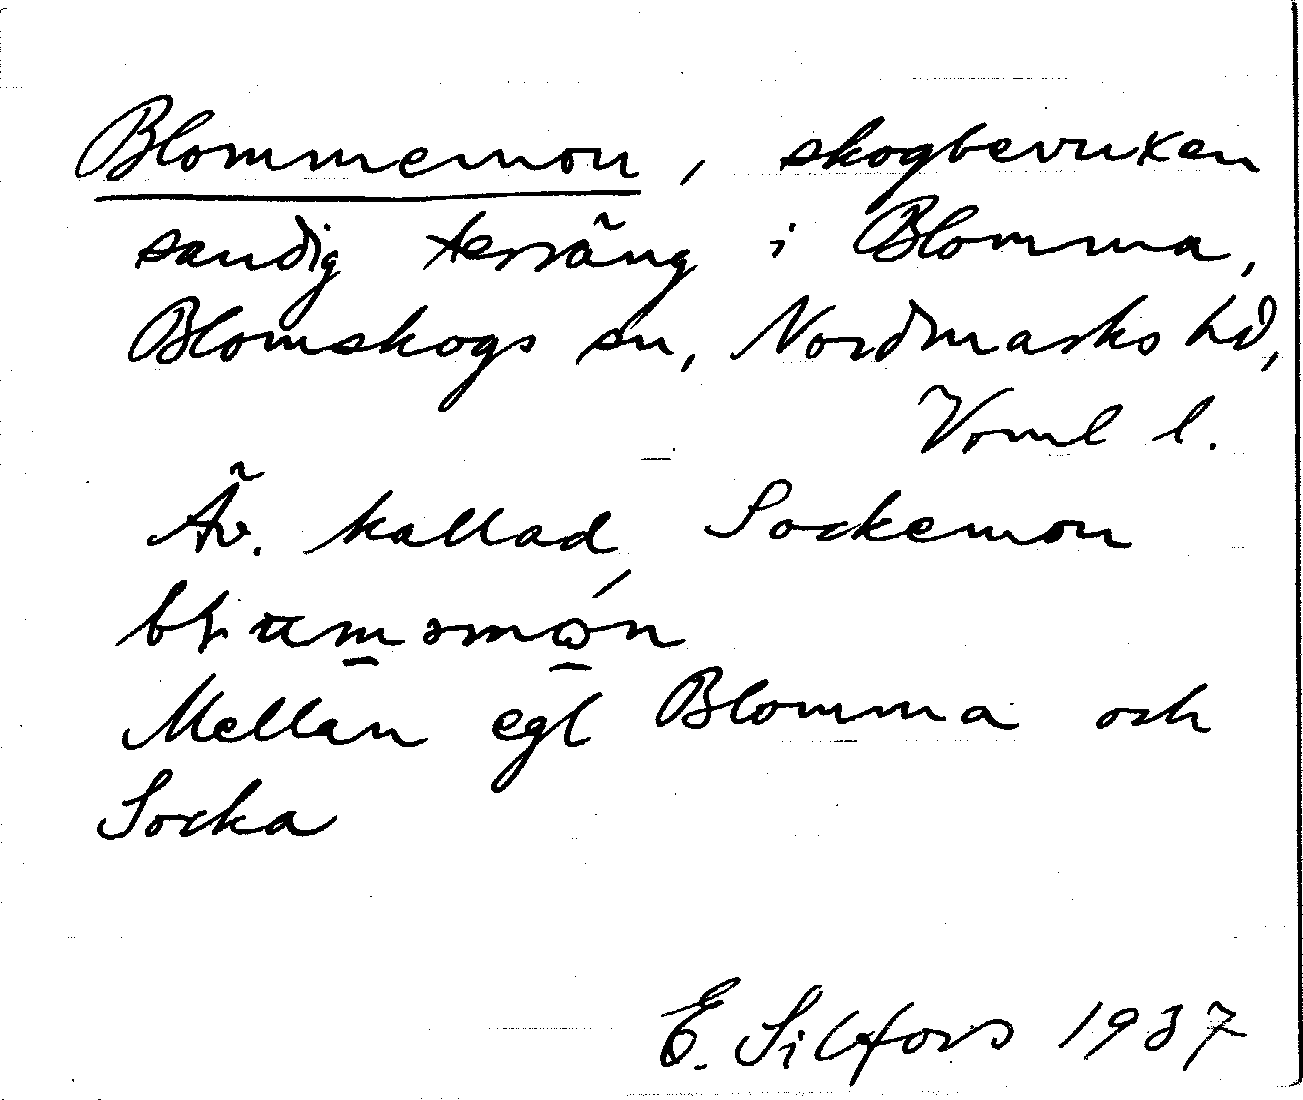 Blommemon, skogbevuxen
sandig terräng i Blomma,
Blomskogs sn, Nordmarks hd,
Vrml l.
Äv. kallad Sockemon
Mellan egl Blomma och
Socka
E. Silfors 1937